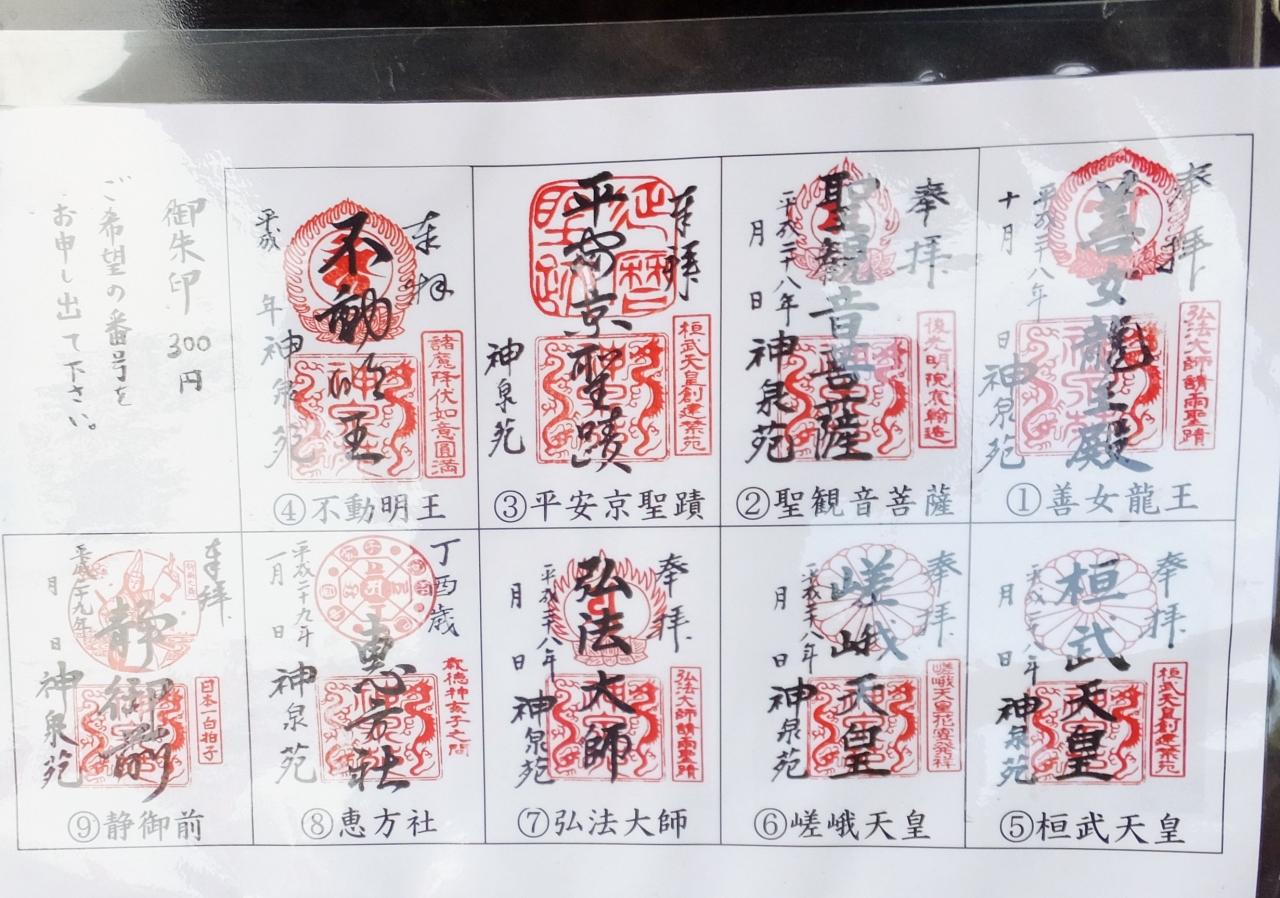 奉拝
善女龍王殿
平成二十八年
十月 日
神泉苑
弘法大師請雨聖蹟
①善女龍王
奉拝
聖観音菩薩
平成二十八年
月 日
神泉苑
②聖観音菩薩
奉拝
延暦聖跡
平安京聖蹟
桓武天皇創建禁苑
神泉苑
③平安京聖蹟
奉拝
不動明王
諸魔降伏如意圓満
平成 年
神泉苑
④不動明王
御朱印
300円
ご希望の番号を
お申し出て下さい。
奉拝
桓武天皇
桓武天皇創建禁苑
月 日
神泉苑
⑤桓武天皇
奉拝
嵯峨天皇
嵯峨天皇花宴発祥
平成二十八年
月 日
神泉苑
⑥嵯峨天皇
奉拝
弘法大師
弘法大師請雨聖蹟
平成二十八年
月 日
神泉苑
⑦弘法大師
丁酉歳
恵方社
平成二十九年
一月 日
神泉苑
⑧恵方社
奉拝
静御前
日本一白拍子
平成二十九年
月 日
神泉苑
⑨静御前